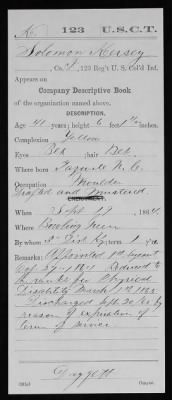 K 123 U.S.C.T.
Solomon Kersey
, Co. , 123 Reg't U. S. Col'd Inf.
Appears on
Company Descriptive Book
of the organization named above.
DESCRIPTION.
Age 40 years; height 6 feet inches.
Complexion Yellow
Eyes Blk ; hair Blk
Where born N. C.
Occupation Moulder
Drafted and Mustered.
When Sept 19, 1864
Where Bowling Green
By ; term 1 yrs.
Remarks: Appointed 1st Sergeant
Oct 27 1864 Reduced to
the ranks for Physical
Disability March 1st 1865
Discharged Sept 20/65 by
reason of expiration of
term of service
Daggett
Copyist.